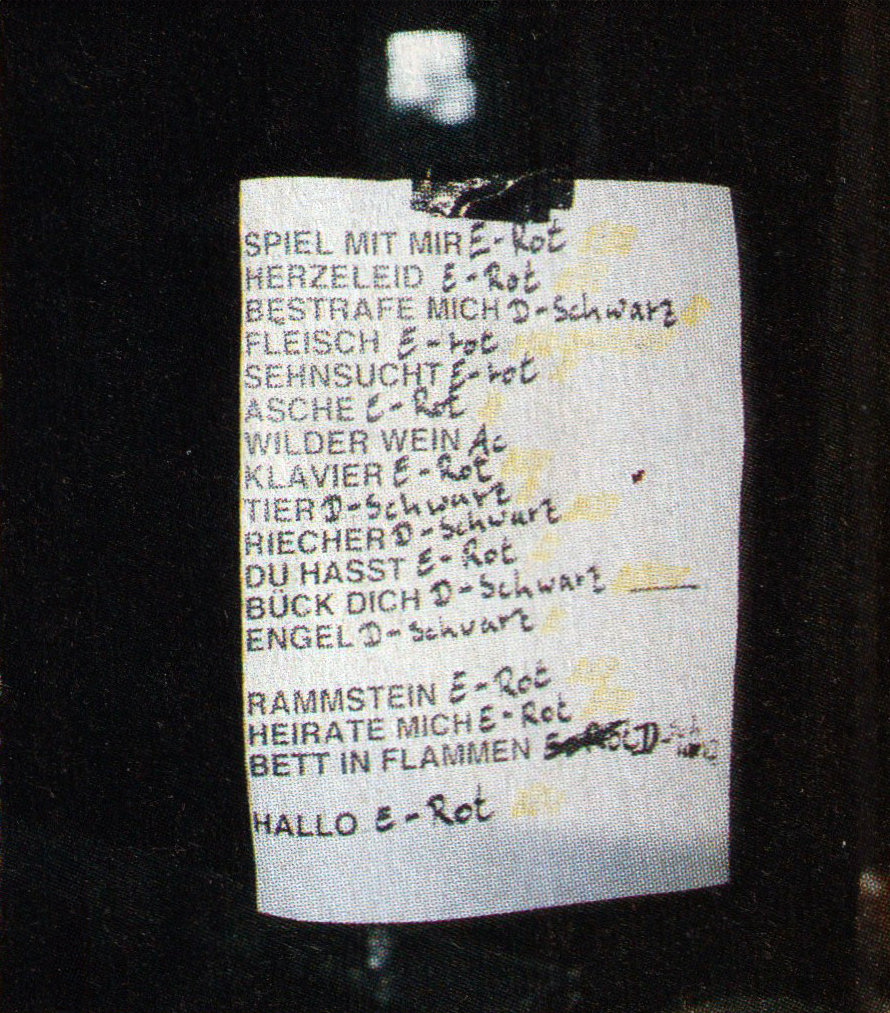 SPIEL MIT MIR E-Rot
HERZELEID E-Rot
BESTRAFE MICH D-Schwarz
FLEISCH E-rot
SEHNSUCHT E-rot
ASCHE E-Rot
WILDER WEIN Ac
KLAVIER E-Rot
TIER D-Schwarz
RIECHER D-Schwarz
DU HASST E-Rot
BÜCK DICH D-Schwarz
ENGEL D-Schwarz
RAMMSTEIN E-Rot
HEIRATE MICH E-Rot
BETT IN FLAMMEN E-Rot D-Schwarz
HALLO E-Rot